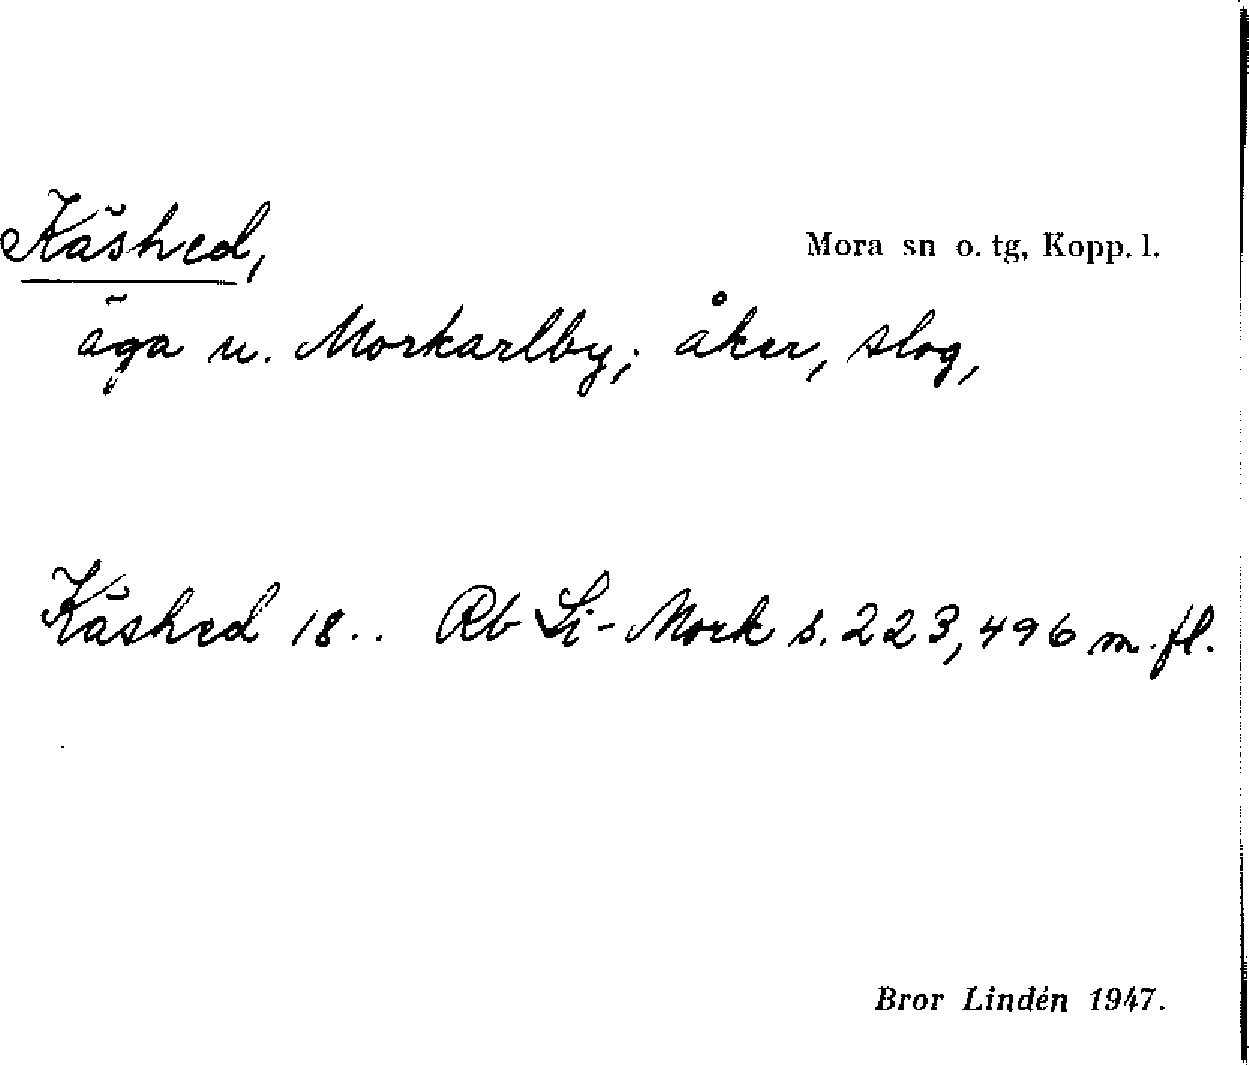 Käshed,
Mora sn o. tg, Kopp. l.
äga u. Morkarlby; åker, slog,
Käshed 18.. Rb Li-Mork s. 223, 496 m. fl.
Bror Lindén 1947.